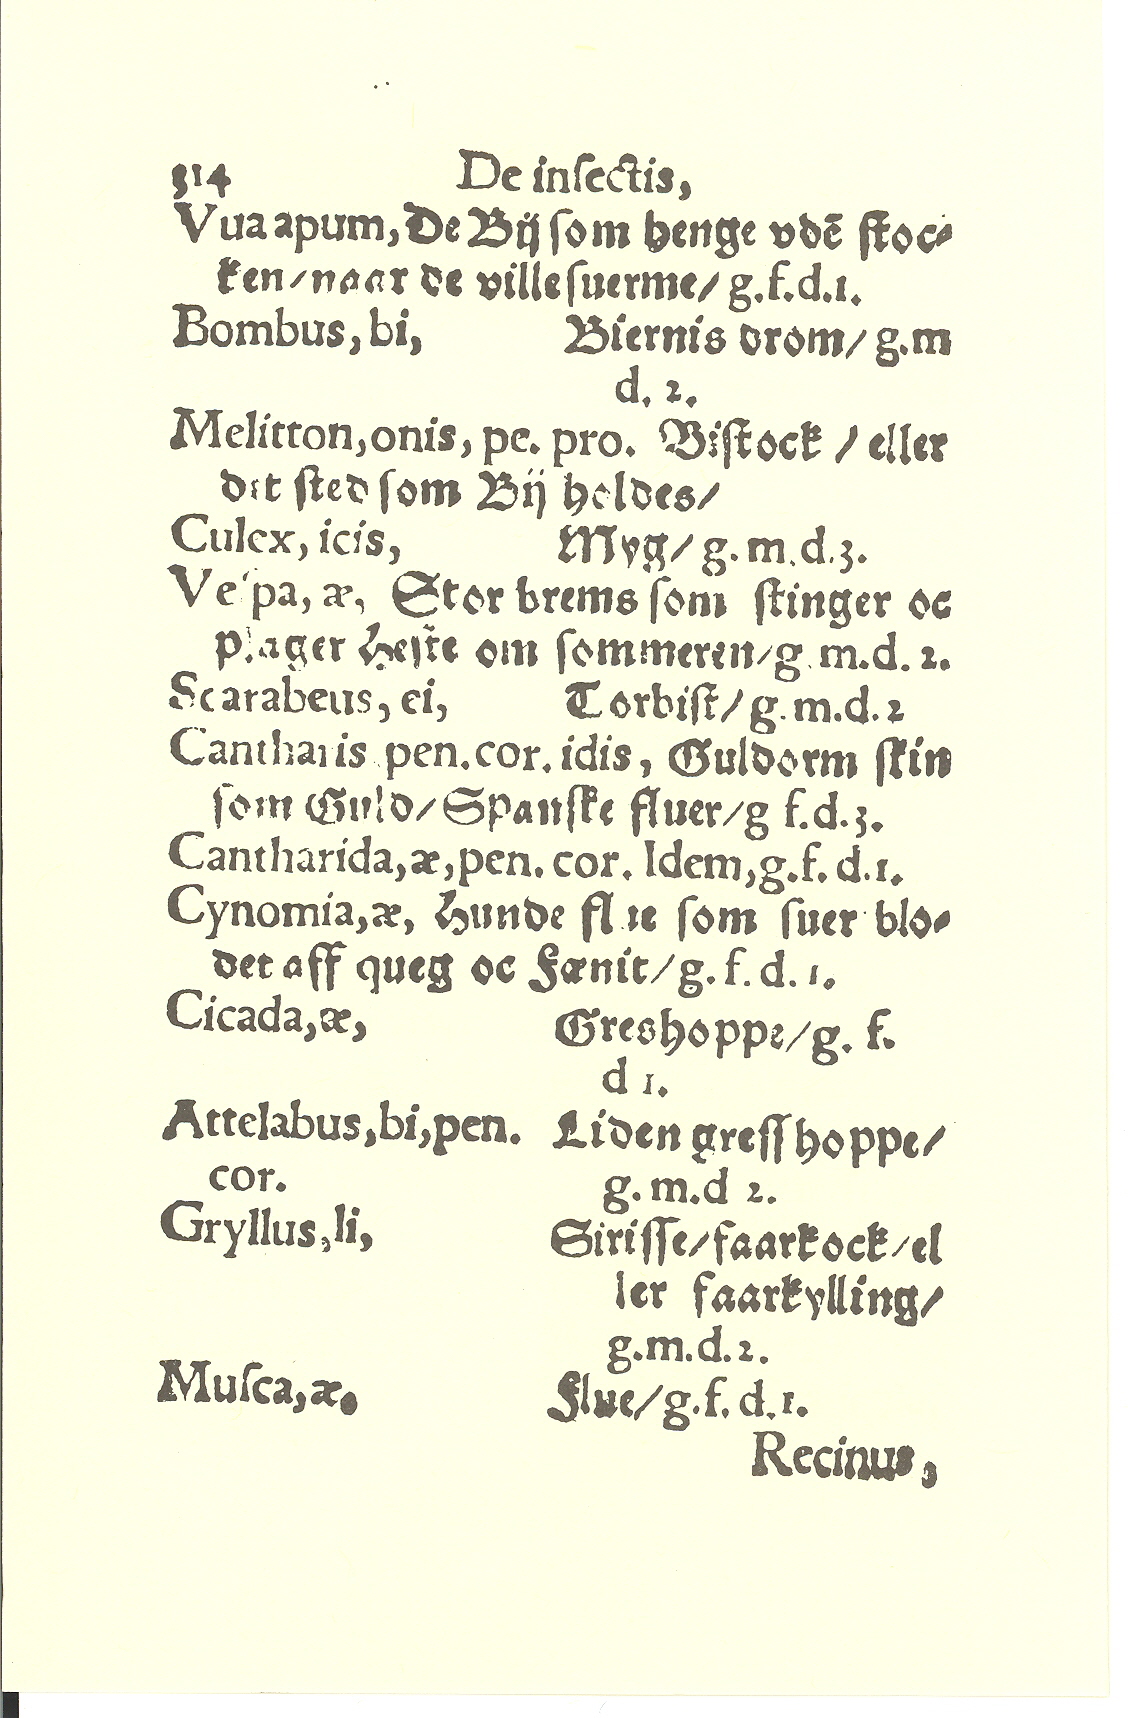 314 De inſectis,
Vua apum, De Bij ſom henge vdē ſtoc⸗
ken/ naar de ville ſuerme/ g.f.d.1.
Bombus, bi, Biernis drom/ g.m
d. 2.
Melitton, onis, pe. pro. Biſtock / eller
dit ſted ſom Bij holdes/
Culex, icis, Myg/ g. m. d. 3.
Veſpa, æ, Stor brems ſom ſtinger oc
plager Heſte om ſommeren/ g. m.d. 2.
Scarabeus, ei, Torbiſt/ g.m.d.2
Cantharis pen.cor. idis, Guldorm ſkin
ſom Guld/ Spanſke fluer/ g f.d.3.
Cantharida, æ, pen. cor. Idem, g.f. d.1.
Cynomia, æ, Hunde flue ſom ſuer blo⸗
det aff queg oc Fænit/ g. f. d. 1.
Cicada, æ, Greshoppe/ g. f.
d 1.
Attelabus, bi, pen. Liden greſſhoppe/
cor. g. m.d 2.
Gryllus, li, Siriſſe/ faarkock/ el
ler faarkylling/
g.m.d.2.
Muſca, æ. Flue/ g.f. d.1.
Recinus,